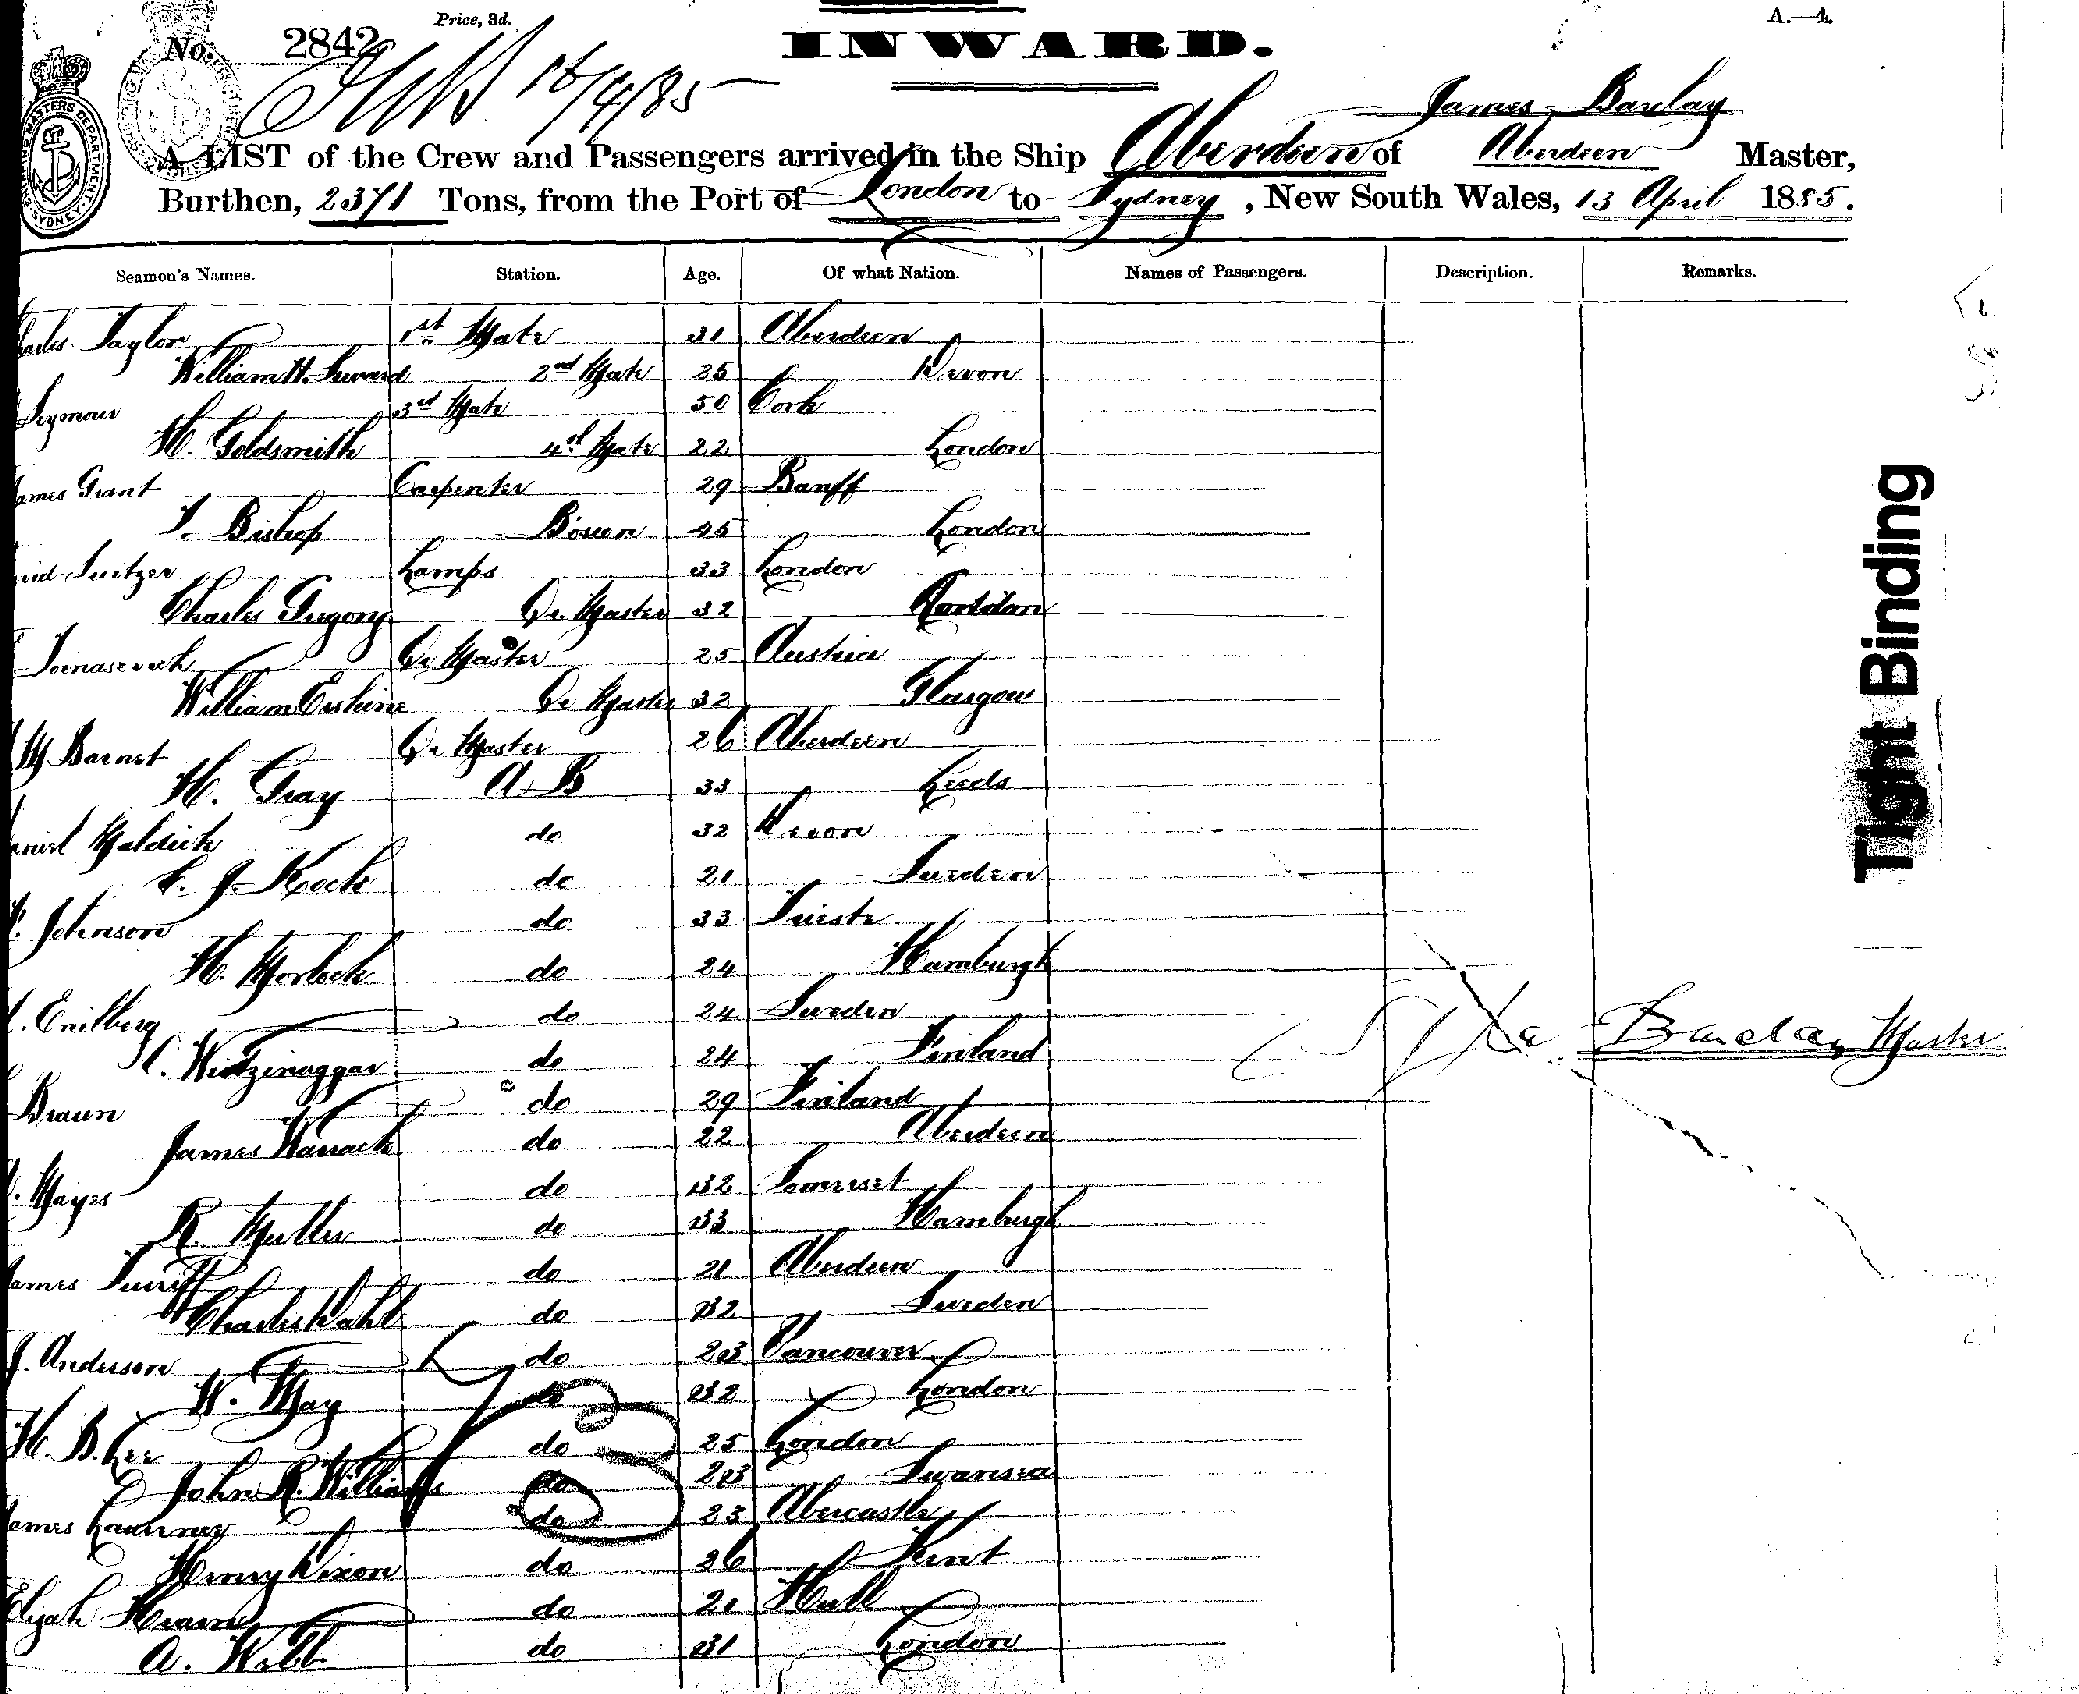 Price, 3d.
A.—4.
No. 2842
INWARD.
16/4/85
James Barclay
A LIST of the Crew and Passengers arrived in the Ship Aberdeen of Aberdeen Master,
Burthen, 2371 Tons, from the Port of London to Sydney, New South Wales, 13 April 1885.
Seamen's Names. Station. Age. Of what Nation. Names of Passengers. Description. Remarks.
Taylor 1st Mate 31 Aberdeen
William H. 2nd Mate 25 Devon
Seymour 3rd Mate 50 Cork
H. Goldsmith 4th Mate 22 London
James Grant Carpenter 29 Banff
T. Bishop Bosun 45 London
Lamps 33 London
Charles Gregory Qr Master 32
Qr Master 25 Austria
William Erskine Qr Master 32 Glasgow
Barnet Qr Master 26 Aberdeen
H. Gray A.B 33 Leeds
do 32 Devon
C. J. Koch do 21 Sweden
Johnson do 33 Trieste
H. Morlock do 24 Hamburgh
do 24 Sweden
C. do 24 Finland
Braun do 29 Finland
James Warrack do 22 Aberdeen
Mayes do 32 Somerset
R. Muller do 33 Hamburgh
James Turriff do 21 Aberdeen
Charles Wahl do 32 Sweden
J. Anderson do 23 Vancouver
W. May do 32 London
H. B. Lee do 25 London
John R. Williams do 23 Swansea
James do 23 Abercastle
Henry Dixon do 26 Kent
Elijah Hearn do 21 Hull
A. Webb do 31 London
Barclay Master
Tight Binding